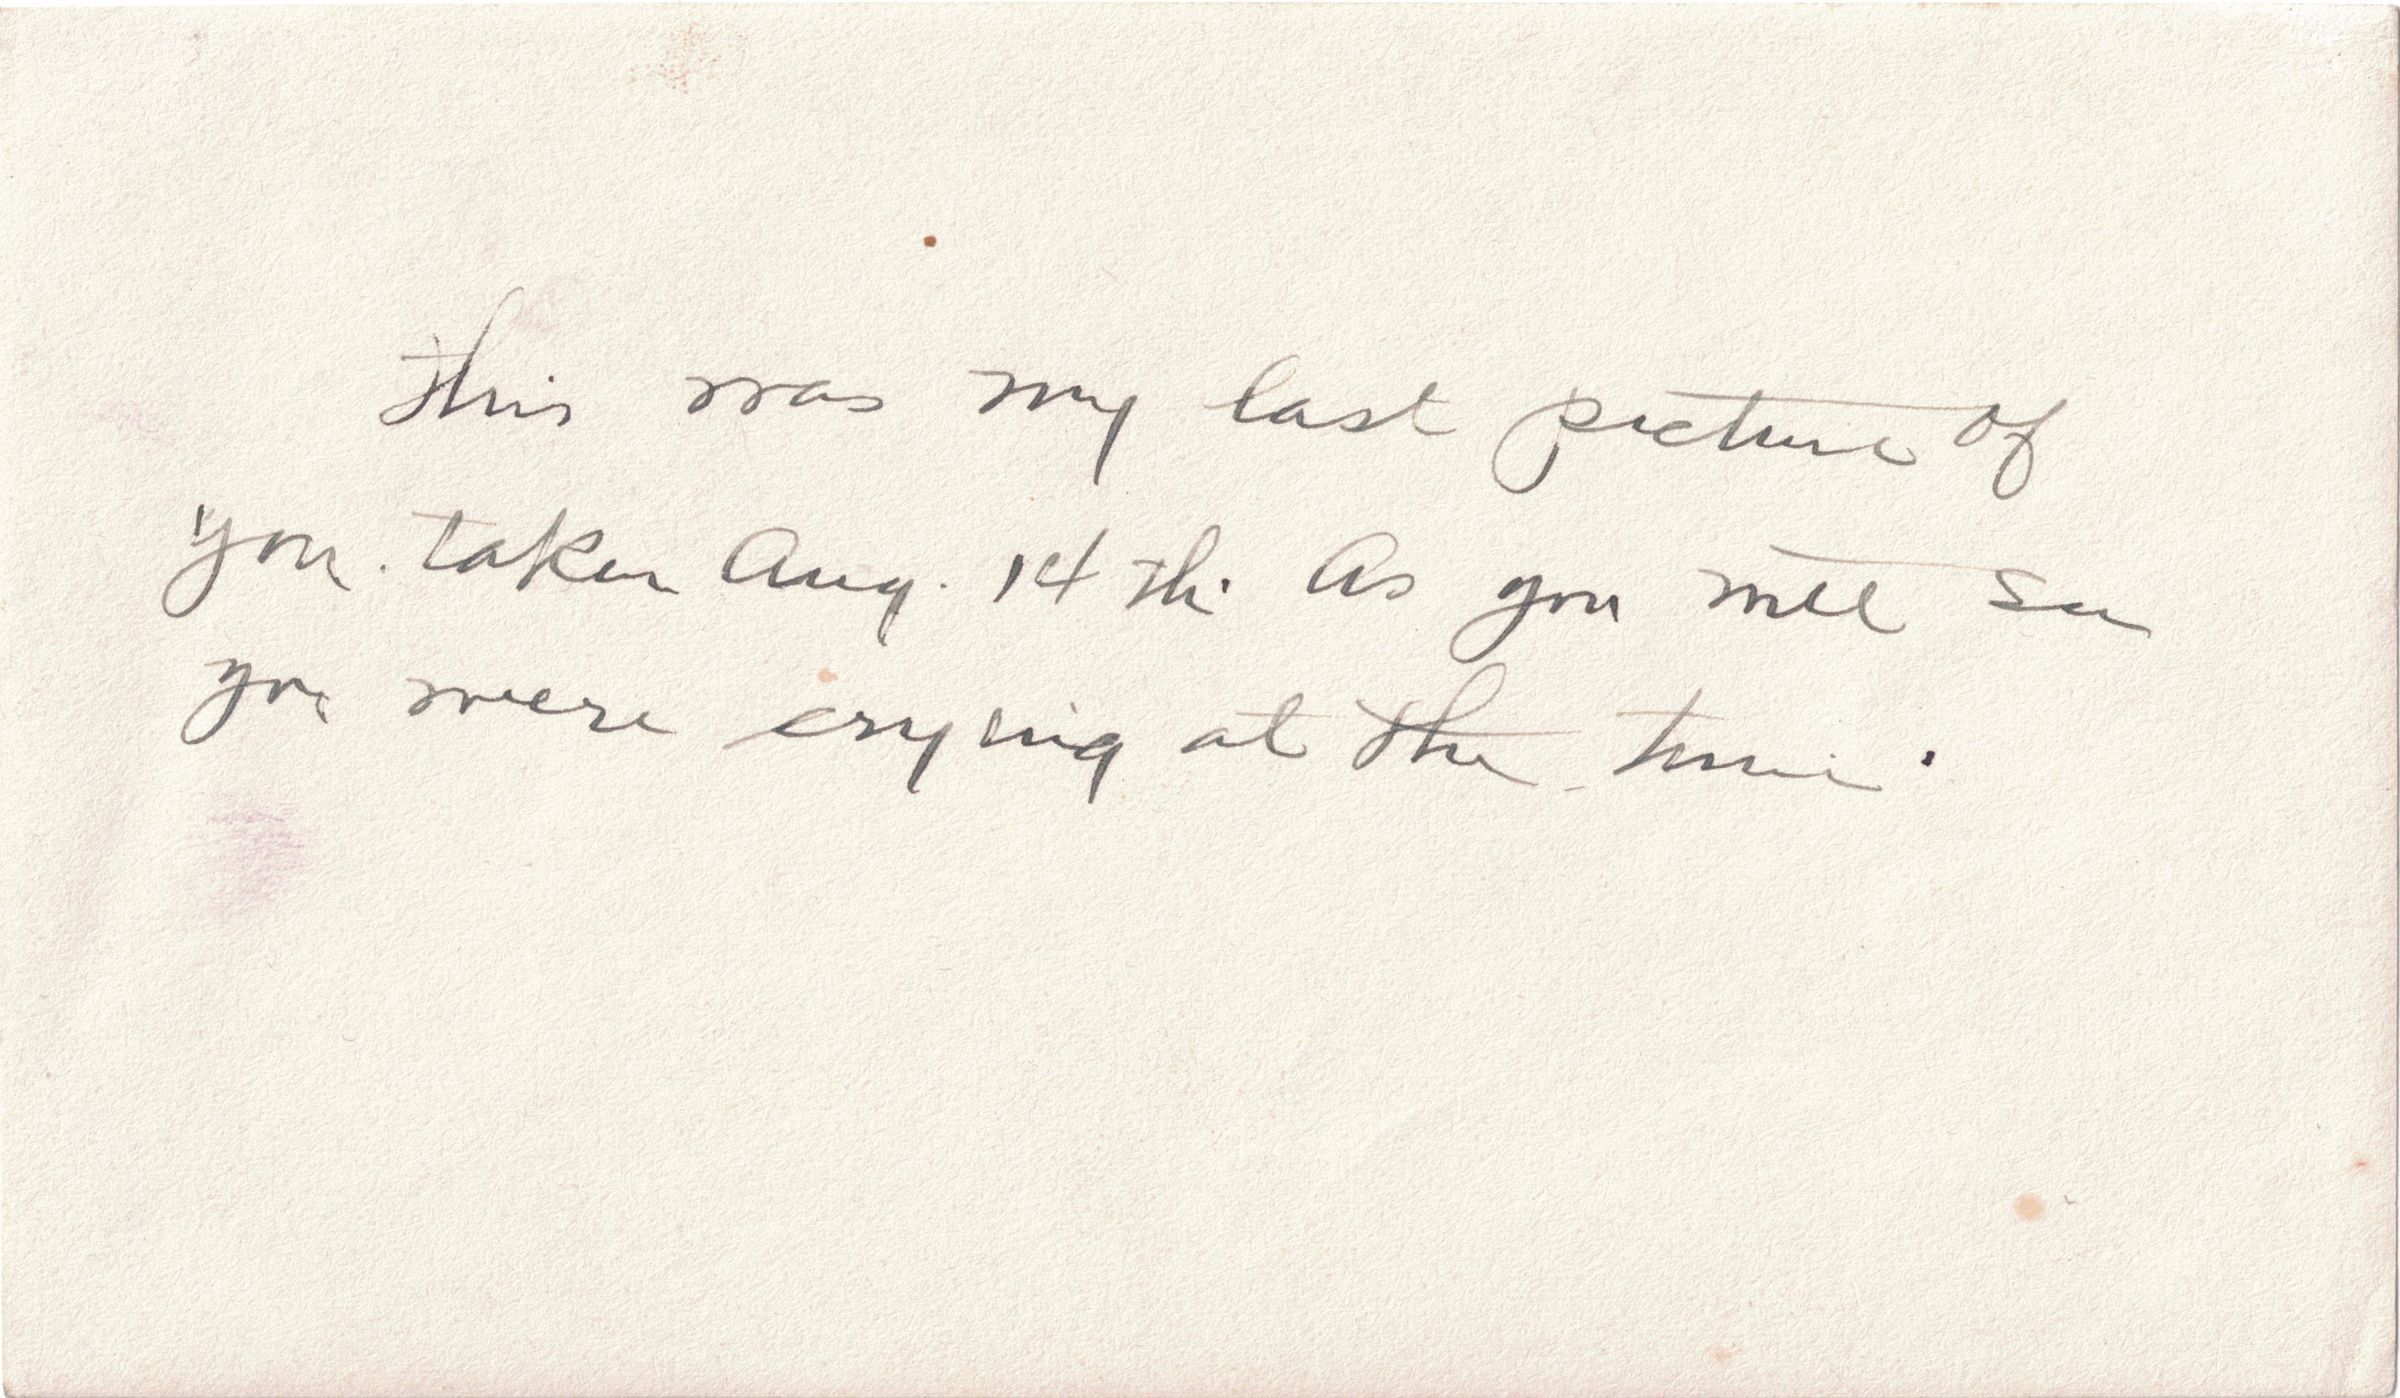 This was my last picture of
you. taken Aug. 14 th. As you will see
you were crying at the time.